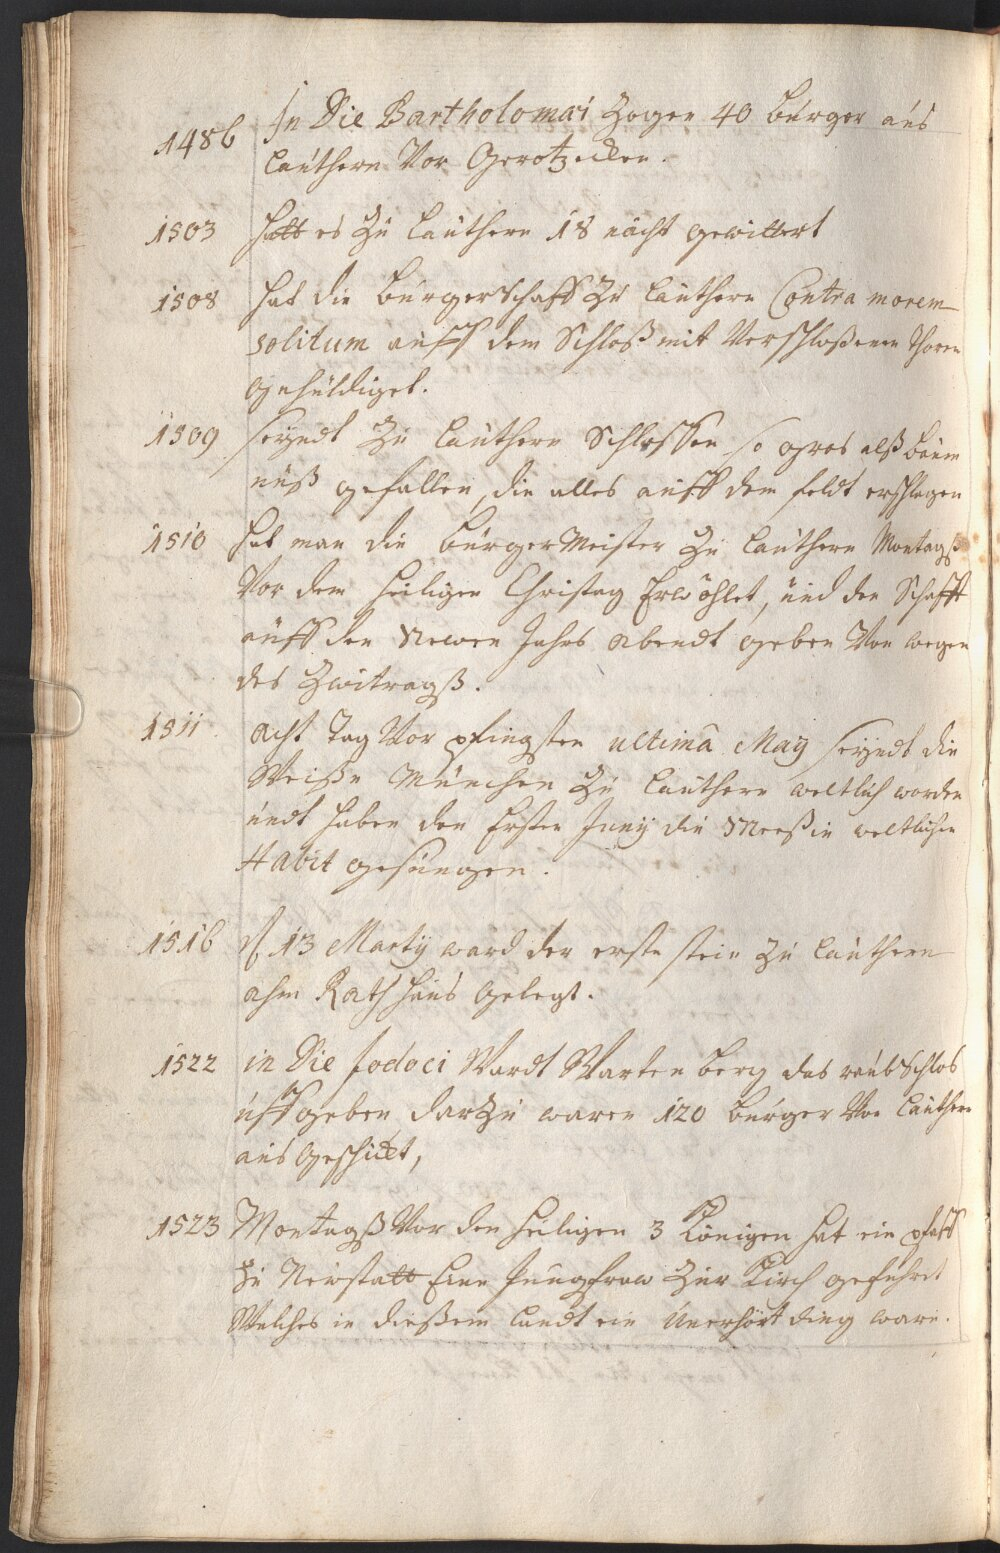 1486 In Die Bartholomæi Zogen 40 bürger aus
Lauthern Vor Gerotzecken.
1503 Hatt es Zu Lauthern 18 nacht gewittert
1508 Hat die bürgerschafft Zu Lauthern Contra morem
solitum auff dem Schloß mit Verschloßenen Thoren
gehuldiget.
1509 seyndt Zu Lauthern Schlossen so gros alß baum
nuß gefallen, die alles auff dem feldt erschlagen
1510 Hat man die bürgerMeister Zu Lauthern Montagß
Vor dem heiligen Christag Erwöhlet, und den Schafft
auff den Newen Jahrs abendt geben Von wegen
des Zwitragß.
1511 acht Tag Vor pfingsten ultimâ May seyndt die
Weiße München Zu Lauthern weltlich worden
undt haben den Ersten Juny die Meeß in weltlichen
Habit gesungen.
1516 13 Martij ward der erste stein Zu Lauthern
ahm Rathhaus gelegt.
1522 in Die Jodoci Wardt Wartenberg das raubSchlos
uffgeben darzu waren 120 bürger Von Lauthern
aus geschickt,
1523 Montagß Vor den heiligen 3 Königen hat ein pfaff
Zu Neustatt Eine Jungfraw Zur Kirch geführet
Welches in dießem Landt ein Unerhört ding ware.